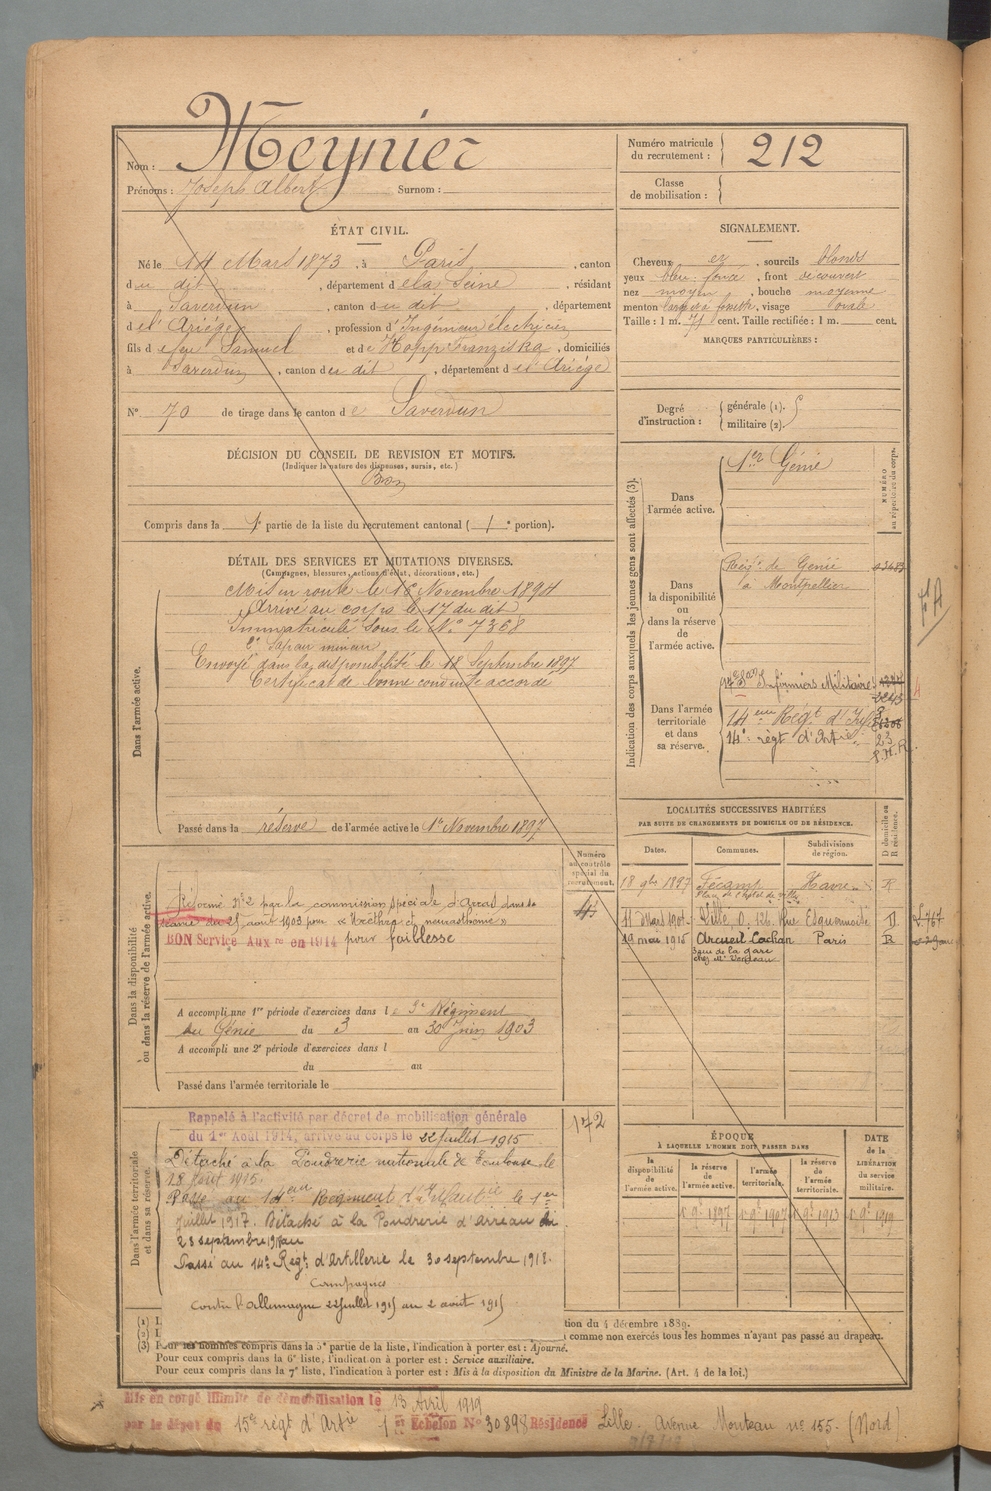 Nom : Meynier
Prénoms : Joseph Albert Surnom :
Numéro matricule du recrutement : 212
Classe de mobilisation :
ÉTAT CIVIL.
Né le 14 Mars 1873, à Paris, canton
du dit, département de la Seine, résidant
à Saverdun, canton du dit, département
de l'Ariège, profession d'Ingénieur électricien
fils de feu Samuel et de Hopp Franziska, domiciliés
à Saverdun, canton du dit, département de l'Ariège
N° 70 de tirage dans le canton de Saverdun
SIGNALEMENT.
Cheveux et, sourcils blonds
yeux bleu foncé, front découvert
nez moyen, bouche moyenne
menton large à fossette, visage ovale
Taille : 1 m. 71 cent. Taille rectifiée : 1 m. cent.
MARQUES PARTICULIÈRES :
Degré d'instruction : générale (1). militaire (2).
DÉCISION DU CONSEIL DE REVISION ET MOTIFS.
(Indiquer la nature des dispenses, sursis, etc.)
Bon
Compris dans la 1e partie de la liste du recrutement cantonal (1e portion).
DÉTAIL DES SERVICES ET MUTATIONS DIVERSES.
(Campagnes, blessures, actions d'éclat, décorations, etc.)
Dans l'armée active.
Mis en route le 16 Novembre 1894
Arrivé au corps le 17 du dit
Immatriculé sous le N° 7368
2e Sapeur mineur
Envoyé dans la disponibilité le 18 Septembre 1897
Certificat de bonne conduite accordé
Passé dans la réserve de l'armée active le 1er Novembre 1897
Indication des corps auxquels les jeunes gens sont affectés (3).
NUMÉRO au répertoire du corps.
Dans l'armée active.
1er Génie
Dans la disponibilité ou dans la réserve de l'armée active.
Régt de Génie
à Montpellier
Dans l'armée territoriale et dans sa réserve.
Infirmiers Militaires
14eme Régt d'Inf
14e régt d'Artie
23
P.A.R.
LOCALITÉS SUCCESSIVES HABITÉES
PAR SUITE DE CHANGEMENTS DE DOMICILE OU DE RÉSIDENCE.
Dates. Communes. Subdivisions de région. D domicile ou R résidence.
18 9bre 1897 Fécamp Havre R
Place de l'hôtel de ville
11 Mars 1901 Lille, 0, 126, Rue Esquermoise D
19 mai 1915 Arcueil Cachan Paris R
3 rue de la gare
Numéro au contrôle spécial du recrutement.
Dans la disponibilité ou dans la réserve de l'armée active.
Réformé n°2 par la commission spéciale d'Arras dans sa
séance du 25 août 1903 pour «
BON Service Auxre en 1914 pour faiblesse
A accompli une 1re période d'exercices dans le 3e Régiment
du Génie du 3 au 30 Juin 1903
A accompli une 2e période d'exercices dans l
du au
Passé dans l'armée territoriale le
Dans l'armée territoriale et dans sa réserve.
142
Rappelé à l'activité par décret de mobilisation générale
du 1er Août 1914, arrivé au corps le 22 juillet 1915
Détaché à la Poudrerie nationale de Toulouse le
28 Août 1915.
Passé au 14eme Régiment d'Infanterie le 1er
Juillet 1917. Détaché à la Poudrerie d'
23 septembre 19
Passé au 14e Régt d'Artillerie le 30 septembre 1918.
Campagnes
Contre l'Allemagne 22 juillet 1915 au 2 août 1915
ÉPOQUE
À LAQUELLE L'HOMME DOIT PASSER DANS
la disponibilité de l'armée active. la réserve de l'armée active. l'armée territoriale. la réserve de l'armée territoriale.
DATE de la LIBÉRATION du service militaire.
1er 9bre 1897 1er 9bre 1907 1er 9bre 1913 1er 9bre 1919
(1) L
(2) L
tion du 4 décembre 1889.
comme non exercés tous les hommes n'ayant pas passé au drapeau.
(3) Pour les hommes compris dans la 5e partie de la liste, l'indication à porter est : Ajourné.
Pour ceux compris dans la 6e liste, l'indication à porter est : Service auxiliaire.
Pour ceux compris dans la 7e liste, l'indication à porter est : Mis à la disposition du Ministre de la Marine. (Art. 4 de la loi.)
Mis en congé illimité de démobilisation le 13 Avril 1919
par le dépôt du 15e régt d'Artie 1er Echelon N° 30898 Résidence Lille. Avenue n° 155. (Nord)